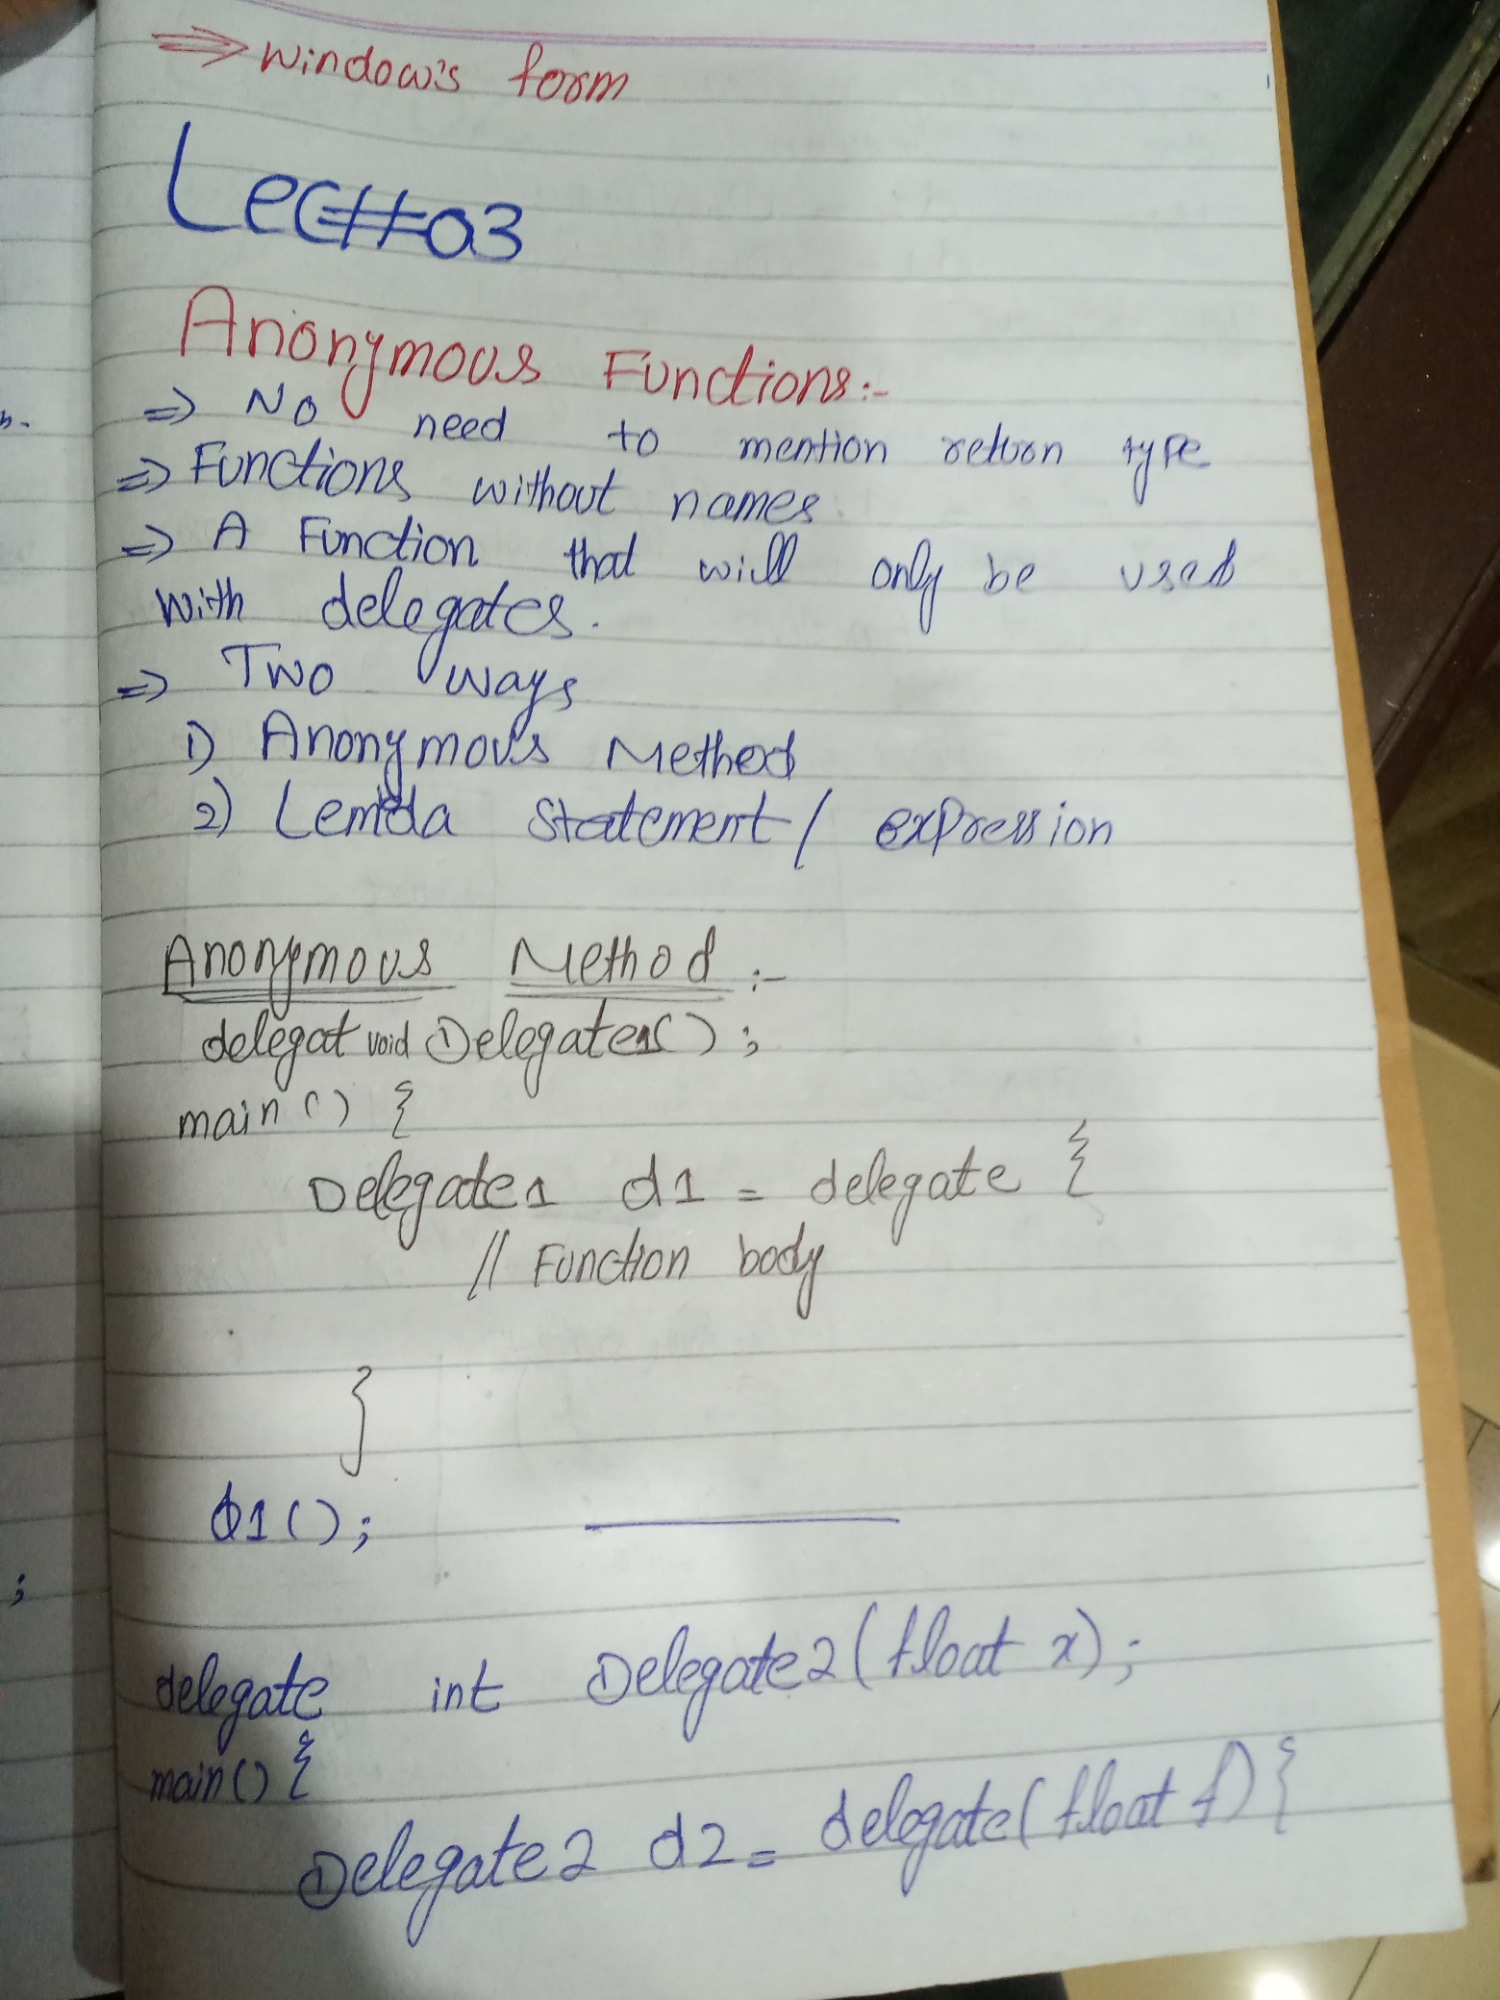 ⇒ Window's form
Lec#03
Anonymous Functions:-
⇒ No need to mention return type
⇒ Functions without names.
⇒ A Function that will only be used
with delegates.
⇒ Two ways
1) Anonymous Method
2) Lemda Statement / expression
Anonymous Method :-
delegat void Delegate1();
main() {
Delegate1 d1 = delegate {
// Function body
}
d1();
delegate int Delegate2(float x);
main() {
Delegate2 d2 = delegate(float f) {